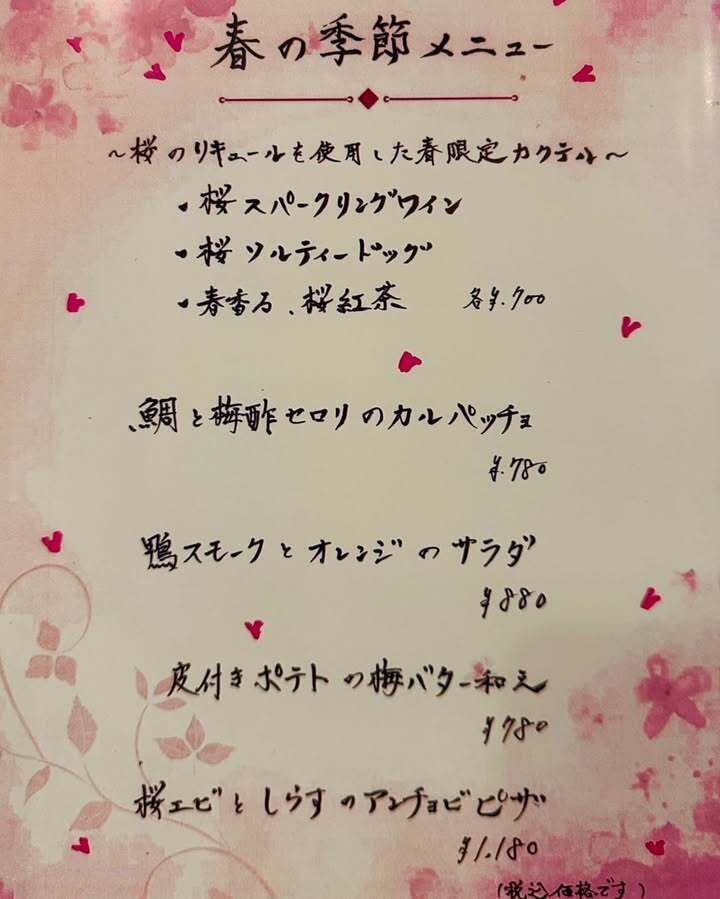 春の季節メニュー
～桜のリキュールを使用した春限定カクテル～
・桜スパークリングワイン
・桜ソルティードッグ
・春香る、桜紅茶 各¥.700
鯛と梅酢セロリのカルパッチョ
¥.780
鴨スモークとオレンジのサラダ
¥880
皮付きポテトの梅バター和え
¥780
桜エビとしらすのアンチョビピザ
¥1.180
(税込価格です)